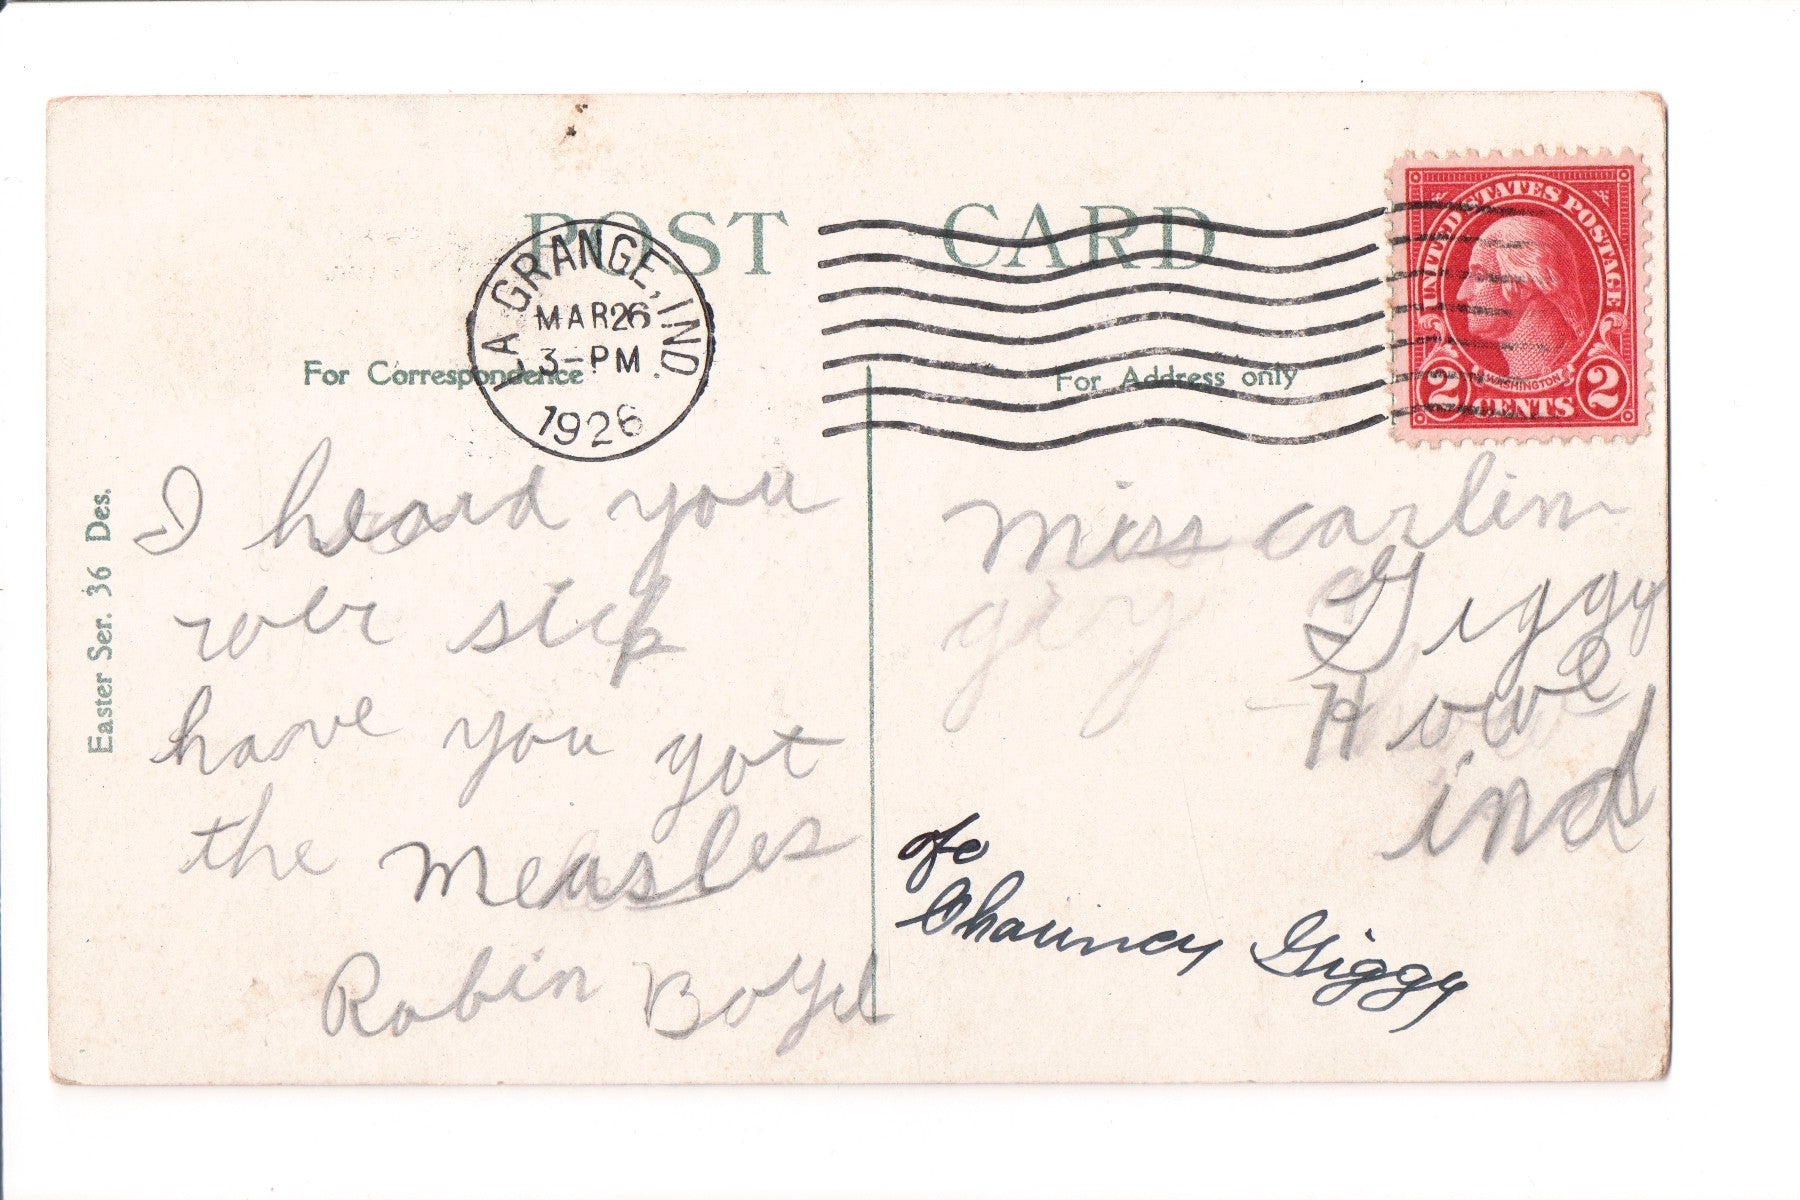 POST CARD
LA GRANGE, IND.
MAR 26
3-PM
1926
UNITED STATES POSTAGE
WASHINGTON
2 CENTS 2
For Correspondence
For Address only
Easter Ser. 36 Des.
I heard you
wer sick
have you got
the measles
Robin Boyd
Miss carlin
Giggy
Howe
ind
Chauncey Giggy